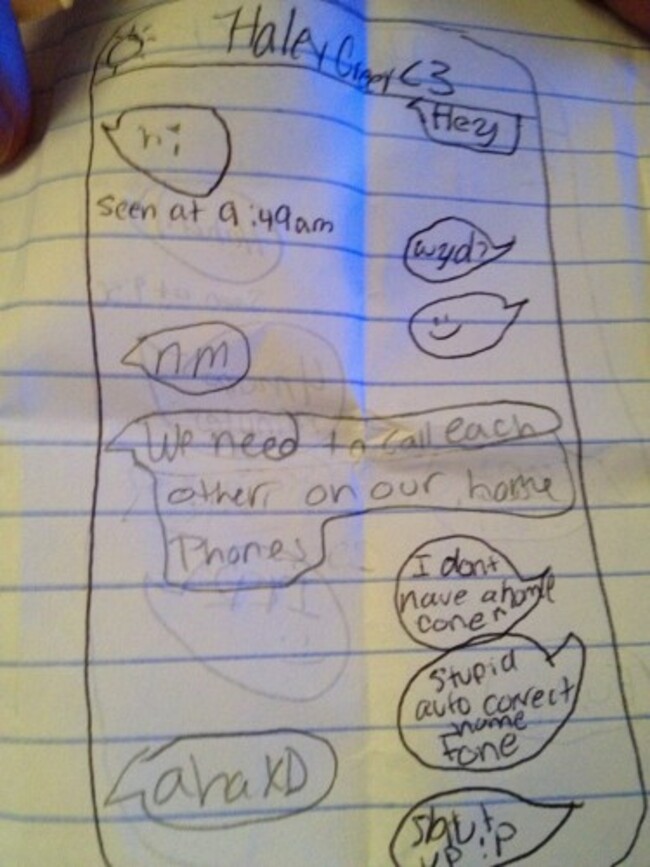 Haley Greer <3
Hey
hi
seen at 9:49am
wyd?
nm
We need to call each
other on our home
Phones
I dont
have a home
coner
Stupid
auto correct
home
Fone
aha XD
Shut
up :p